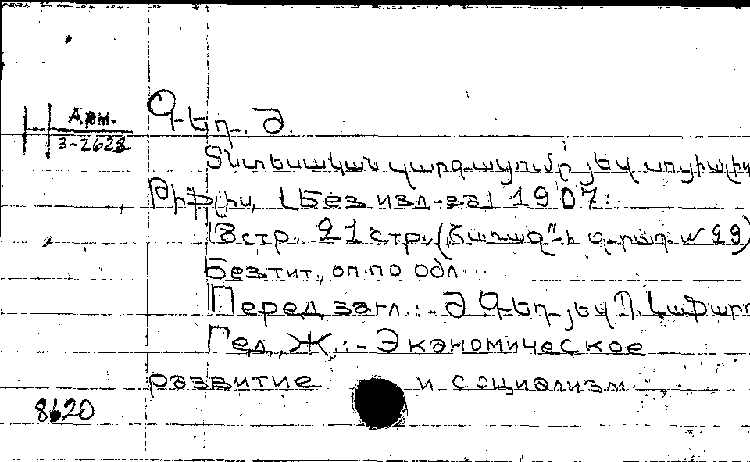 Н Арм.
3-2628
Գեդ. Ժ.
Տնտեսական զարգացումը եվ սոցիալիզ
Թիֆլիս, (Без изд-ва) 1907:
Встр. 21 стр.
Без тит., оп. по обл.
Перед загл.:- Ժ Գեդ եվ Պ. Լաֆարգ
Гед, Ж.:- Экономическое
развитие и социализм
8620